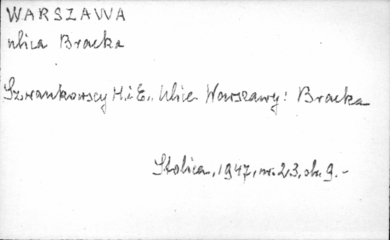 WARSZAWA
ulica Bracka
Szwankowscy H. i E., Ulice Warszawy: Bracka
Stolica, 1947, nr. 23, str. 9.-